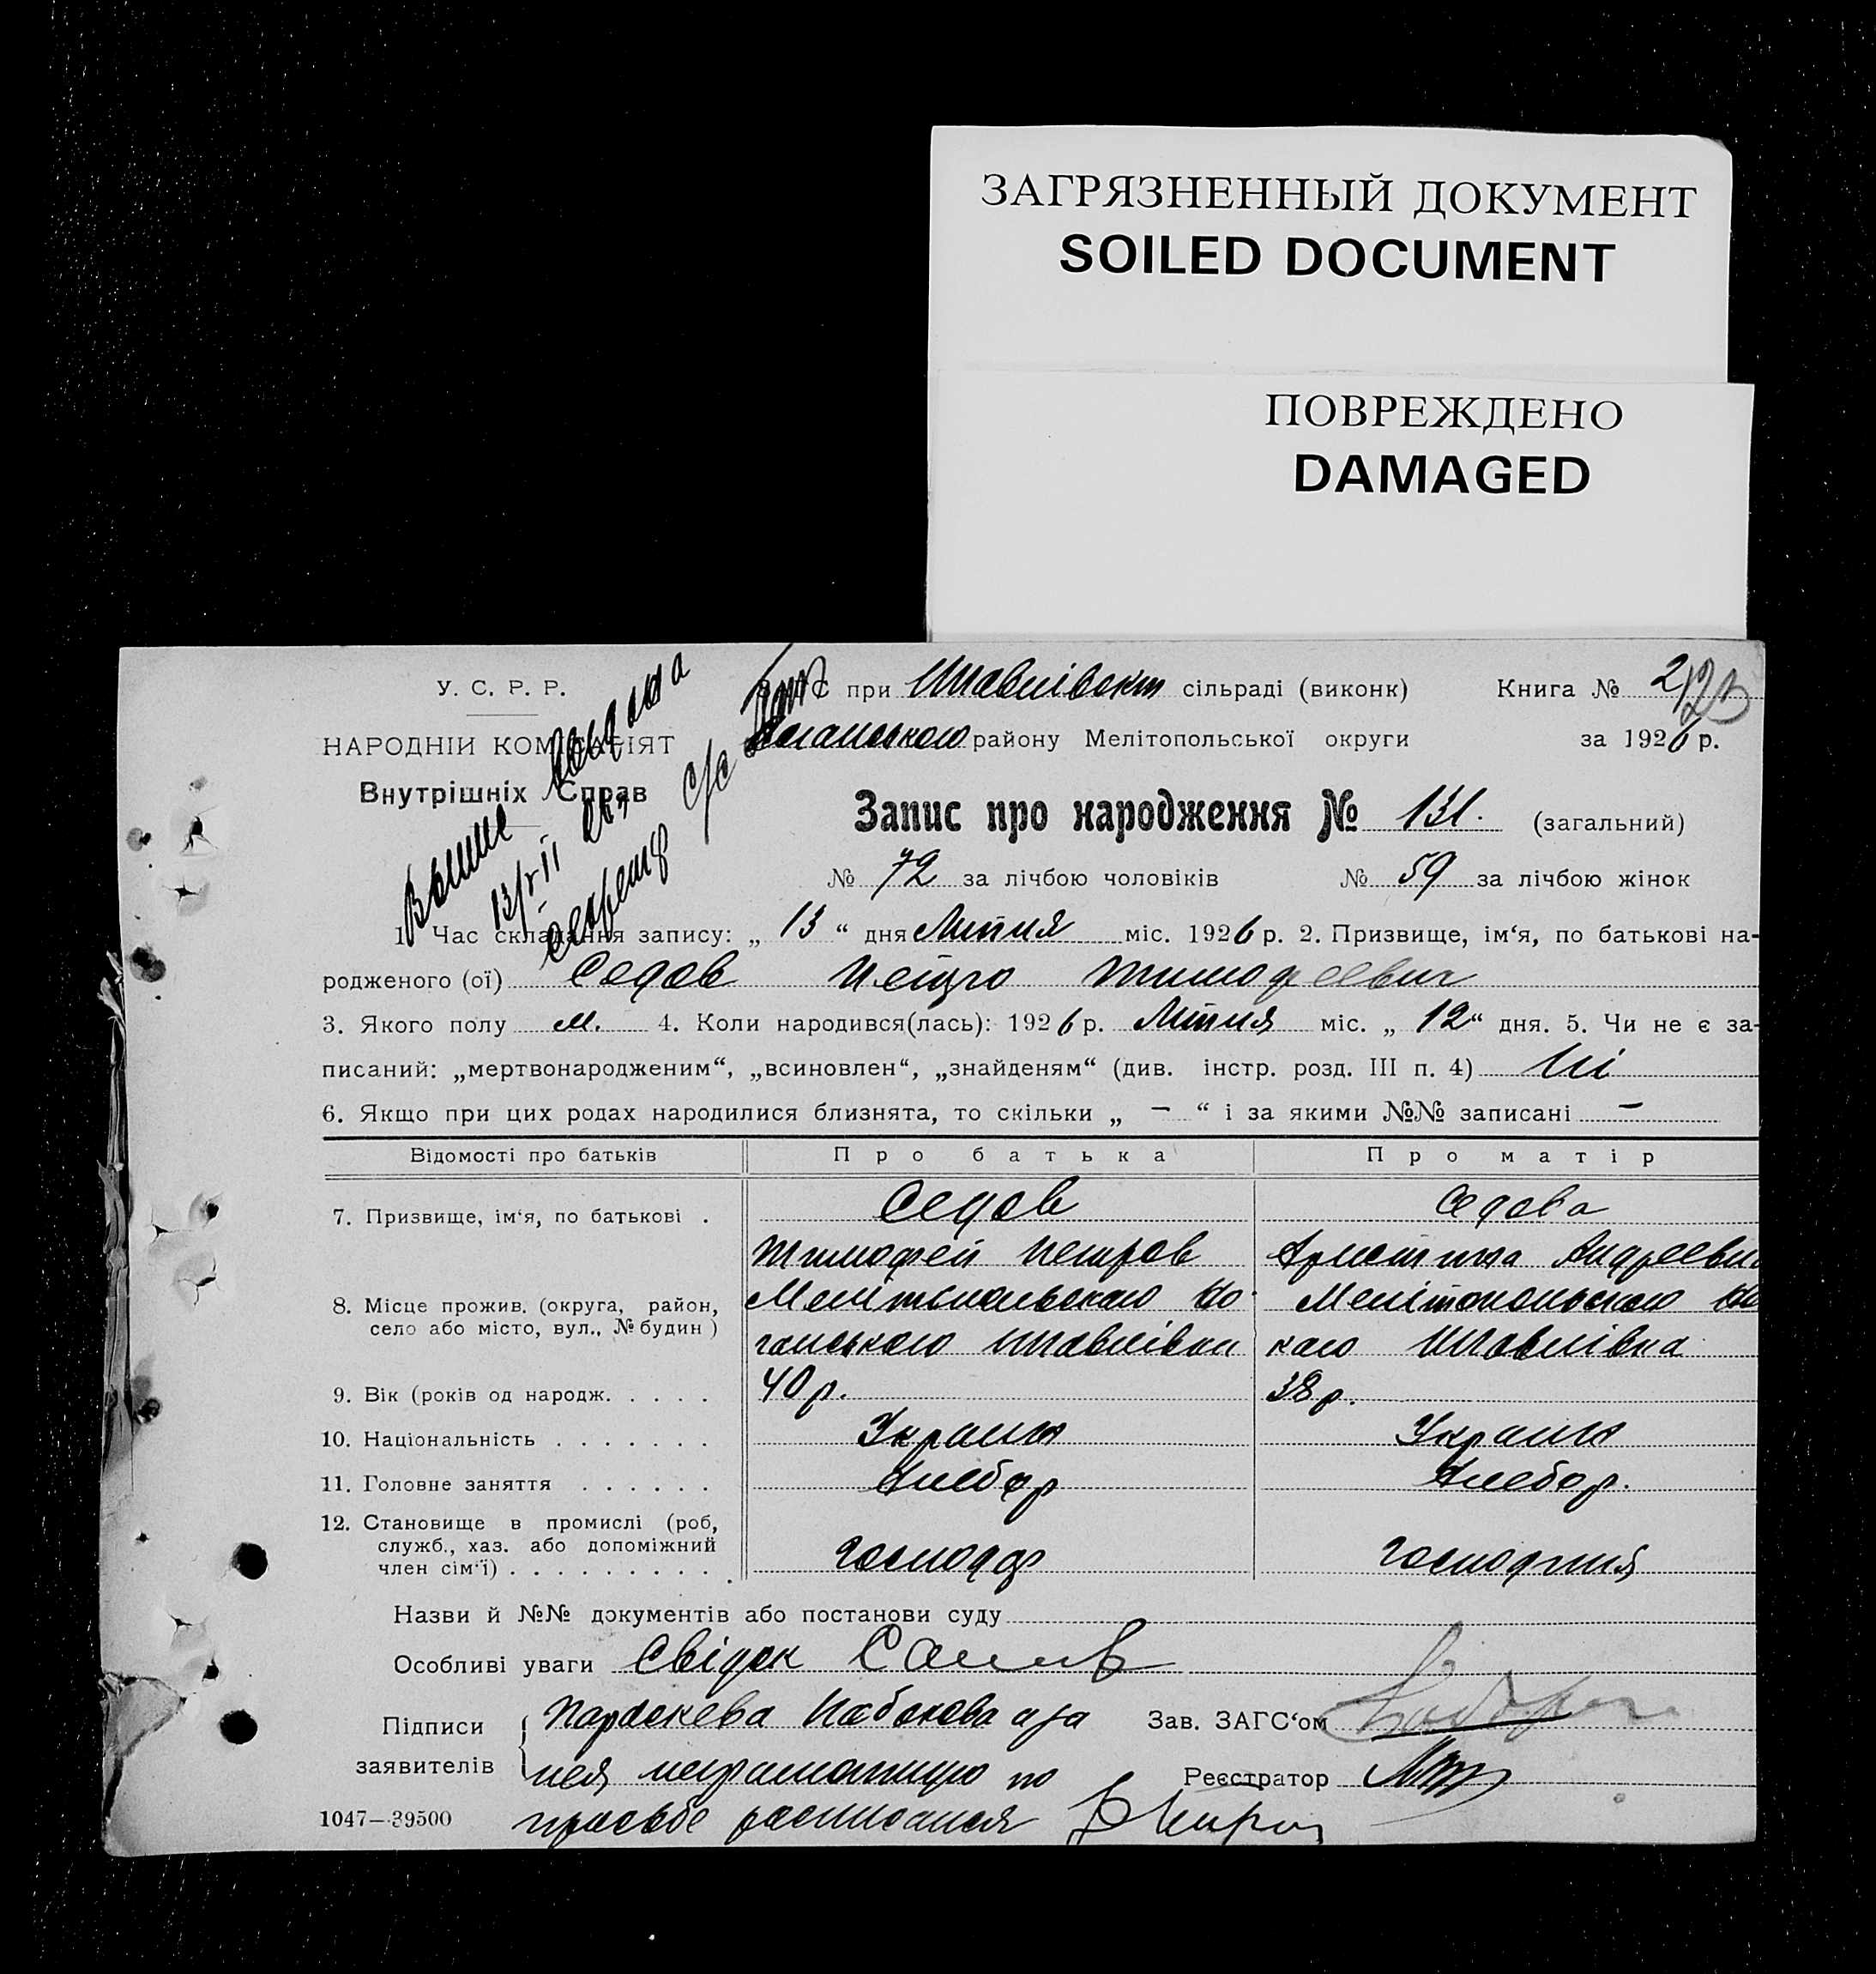 ЗАГРЯЗНЕННЫЙ ДОКУМЕНТ
SOILED DOCUMENT
ПОВРЕЖДЕНО
DAMAGED
У. С. Р. Р.
НАРОДНІЙ КОМІСАРІЯТ
Внутрішніх Справ
ЗАГС при сільраді (виконк) Книга № 2
району Мелітопольської округи за 1926 р.
Запис про народження № 131. (загальний)
№ 72 за лічбою чоловіків № 59 за лічбою жінок
1. Час складання запису: „ 13 “ дня Липня міс. 1926 р. 2. Призвище, ім‘я, по батькові на-
родженого (ої) Седов Петро Тимофеевич
3. Якого полу м. 4. Коли народився(лась): 1926 р. Липня міс. „ 12 “ дня. 5. Чи не є за-
писаний: „мертвонародженим“, „всиновлен“, „знайденям“ (див. інстр. розд. III п. 4) Ні
6. Якщо при цих родах народилися близнята, то скільки „ — “ і за якими №№ записані —
Відомості про батьків Про батька Про матір
7. Призвище, ім‘я, по батькові . Седов Седова
Тимофей Петров Андреевн
8. Місце прожив. (округа, район, село або місто, вул., № будин )
9. Вік (років од народж. . . . . 40 р. 38 р.
10. Національність . . . . . . . Украин Украин
11. Головне заняття . . . . . . Хлебор Хлебор.
12. Становище в промислі (роб,
служб., хаз. або допоміжний
член сім‘ї) . . . . . . . . . . Господар Господиня
Назви й №№ документів або постанови суду
Особливі уваги Свідок
Підписи Параскева Набокова а за Зав. ЗАГС‘ом
заявителів нея неграмотную по Реєстратор
1047—39500 просьбе расписался